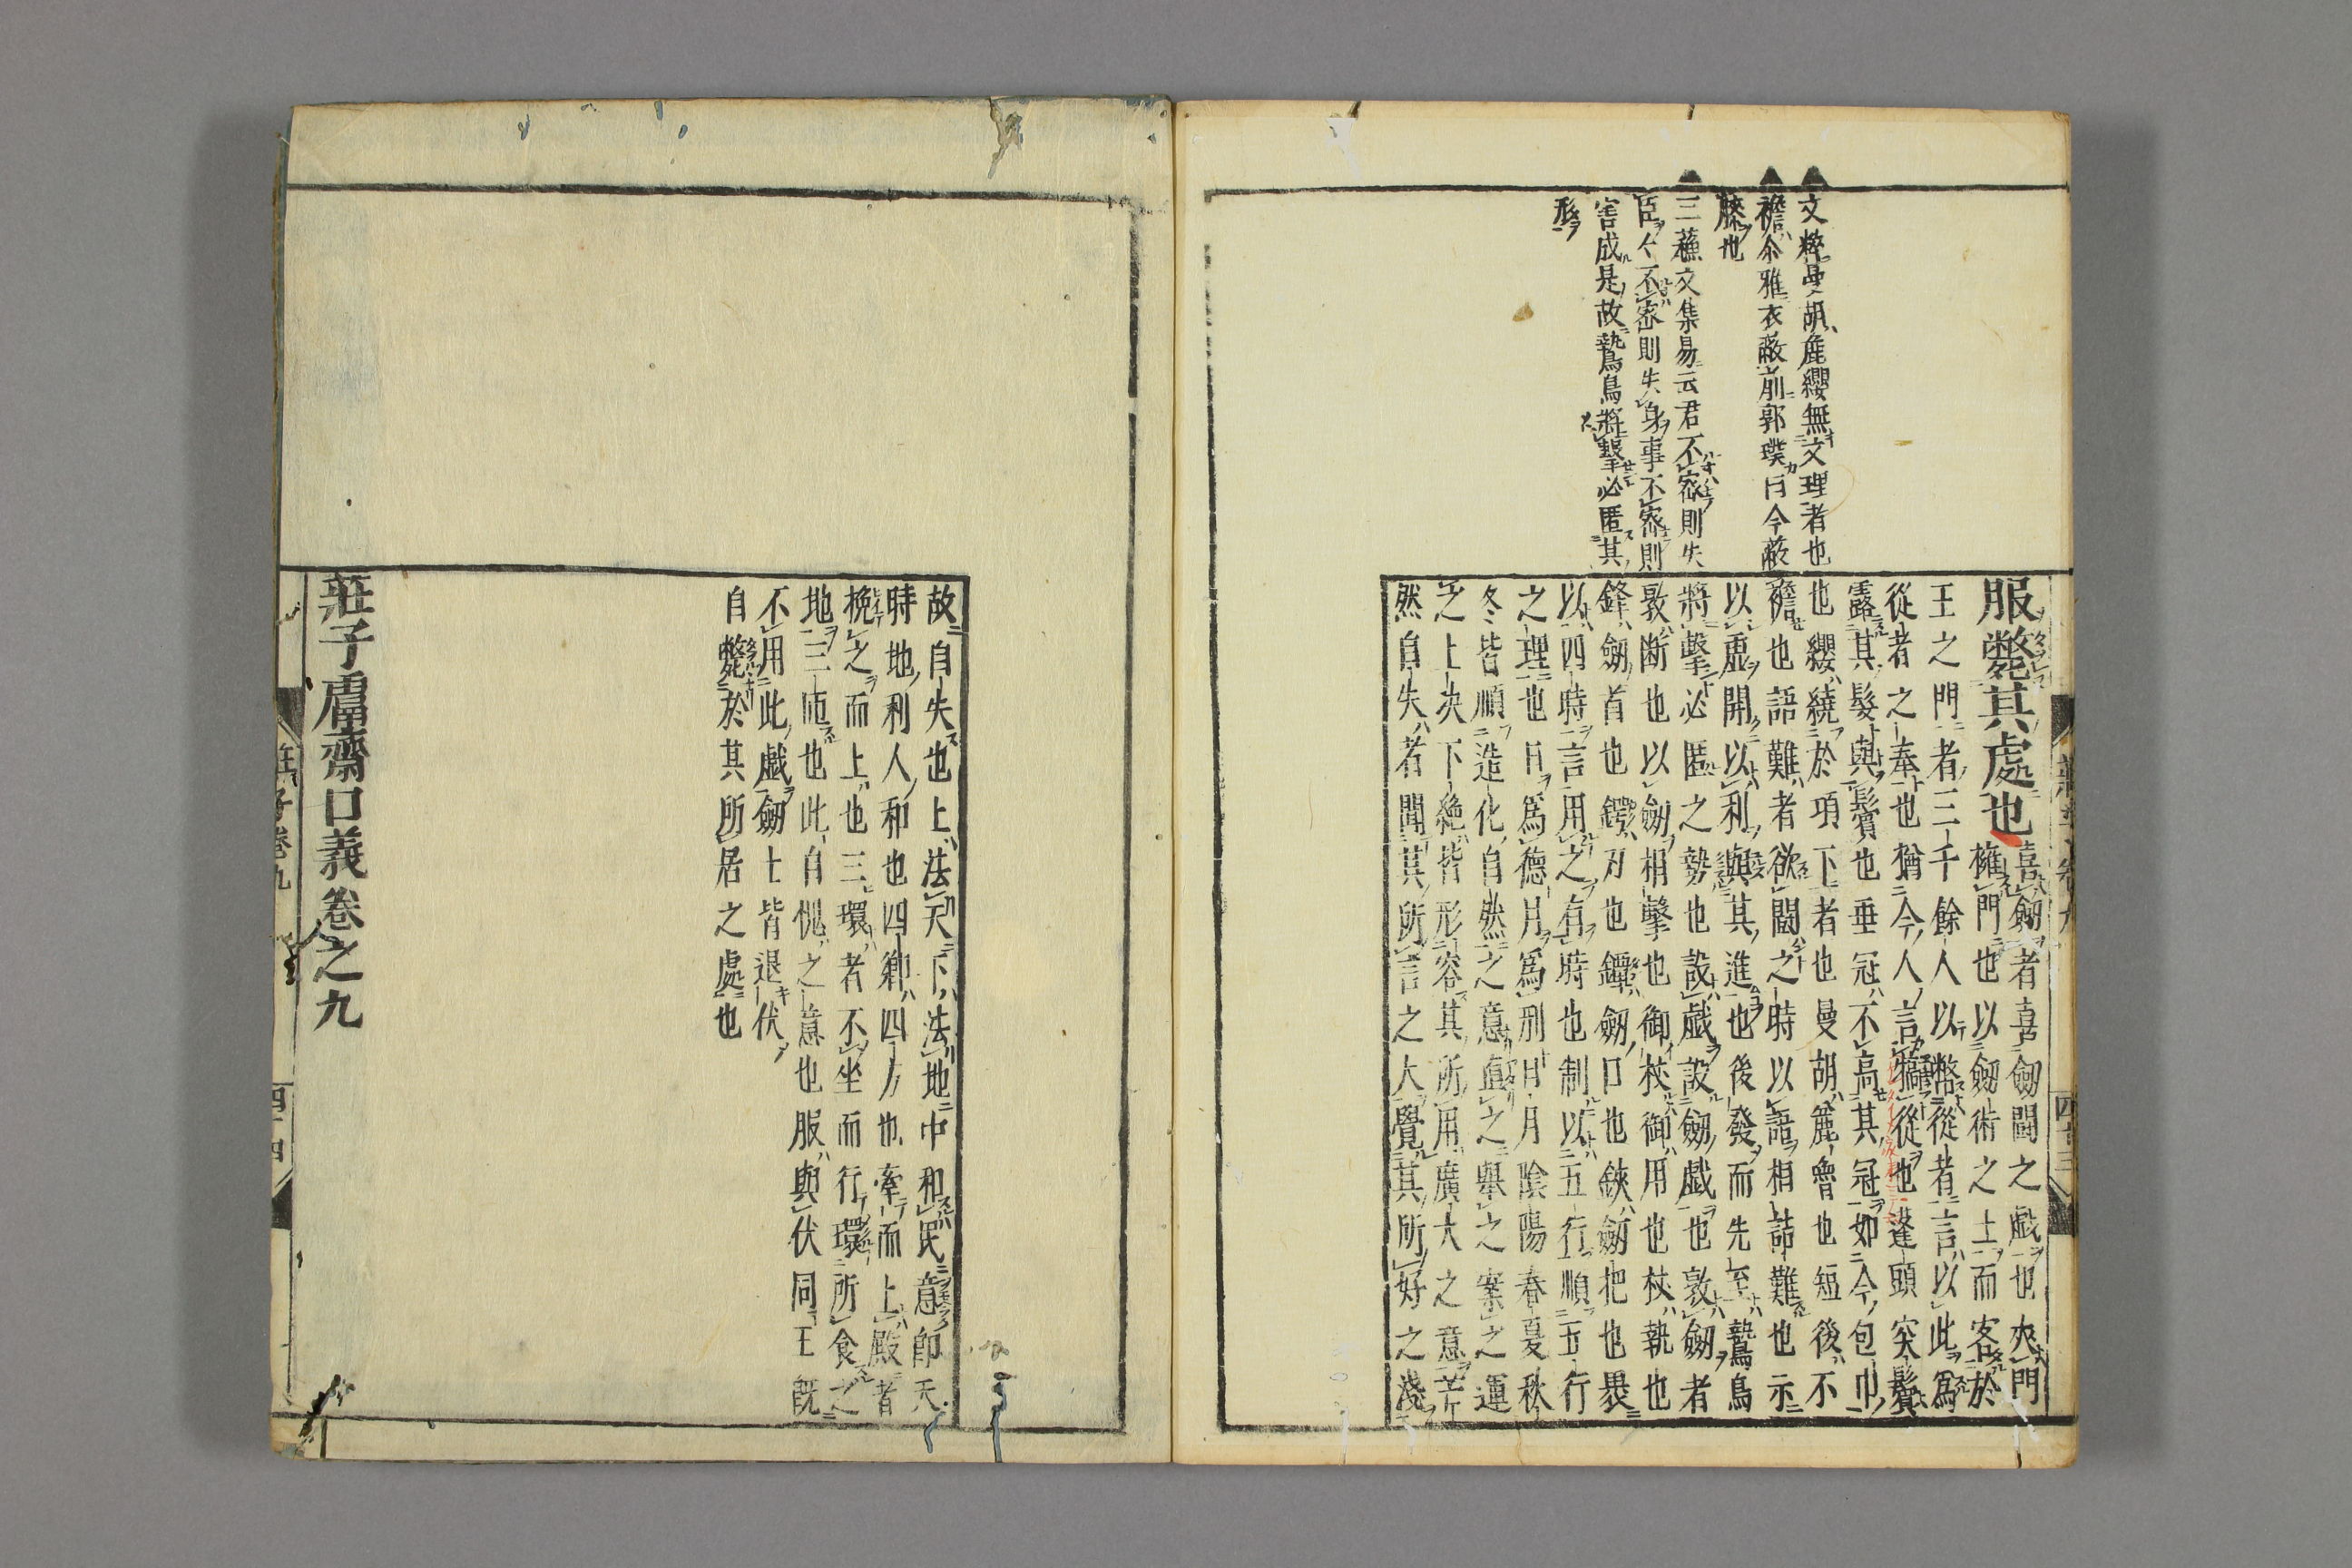 文粹曼胡麄纓無文理者也
襜尒雅衣蔽前郭璞曰今蔽
膝也
三蘓文集易云君不密則失
臣々不密則失身事不密則
害成是故鷙鳥將擊必匿其
形
服斃其處也
喜劔者喜劔鬪之戯也夾門
擁門也以劔術之士而客於
王之門者三千餘人以幣從者言以此爲
從者之奉也猶今人言犒從也蓬頭突鬢
露其髮與鬢也垂冠不高其冠如今包巾
也纓繞於項下者也曼胡麄魯也短後不
襜也語難者欲鬪之時以語相詰難也示
以虚開以利與其進也後發而先至鷙鳥
將擊必匿之勢也設戯設劔戯也敦劔者
敦断也以劔相擊也御杖御用也杖執也
鋒劔首也鍔刃也鐔劔口也鋏劔把也畏
以四時言用之有時也制以五行順五行
之理也日爲德月爲刑日月陰陽春夏秋
冬皆順造化自然之意直之舉之案之運
之上決下絶皆形容其所用廣大之意芒
然自失者聞其所言之大覺其所好之淺
莊子卷九
四十三
故自失也上法天下法地中和民意即天
時地利人和也四鄉四方也牽而上殿者
挽之而上也三環者不坐而行環所食之
地三匝也此自愧之意也服與伏同王既
不用此戯劔士皆退伏
自斃於其所居之處也
莊子鬳齋口義卷之九
莊子卷九
四十四